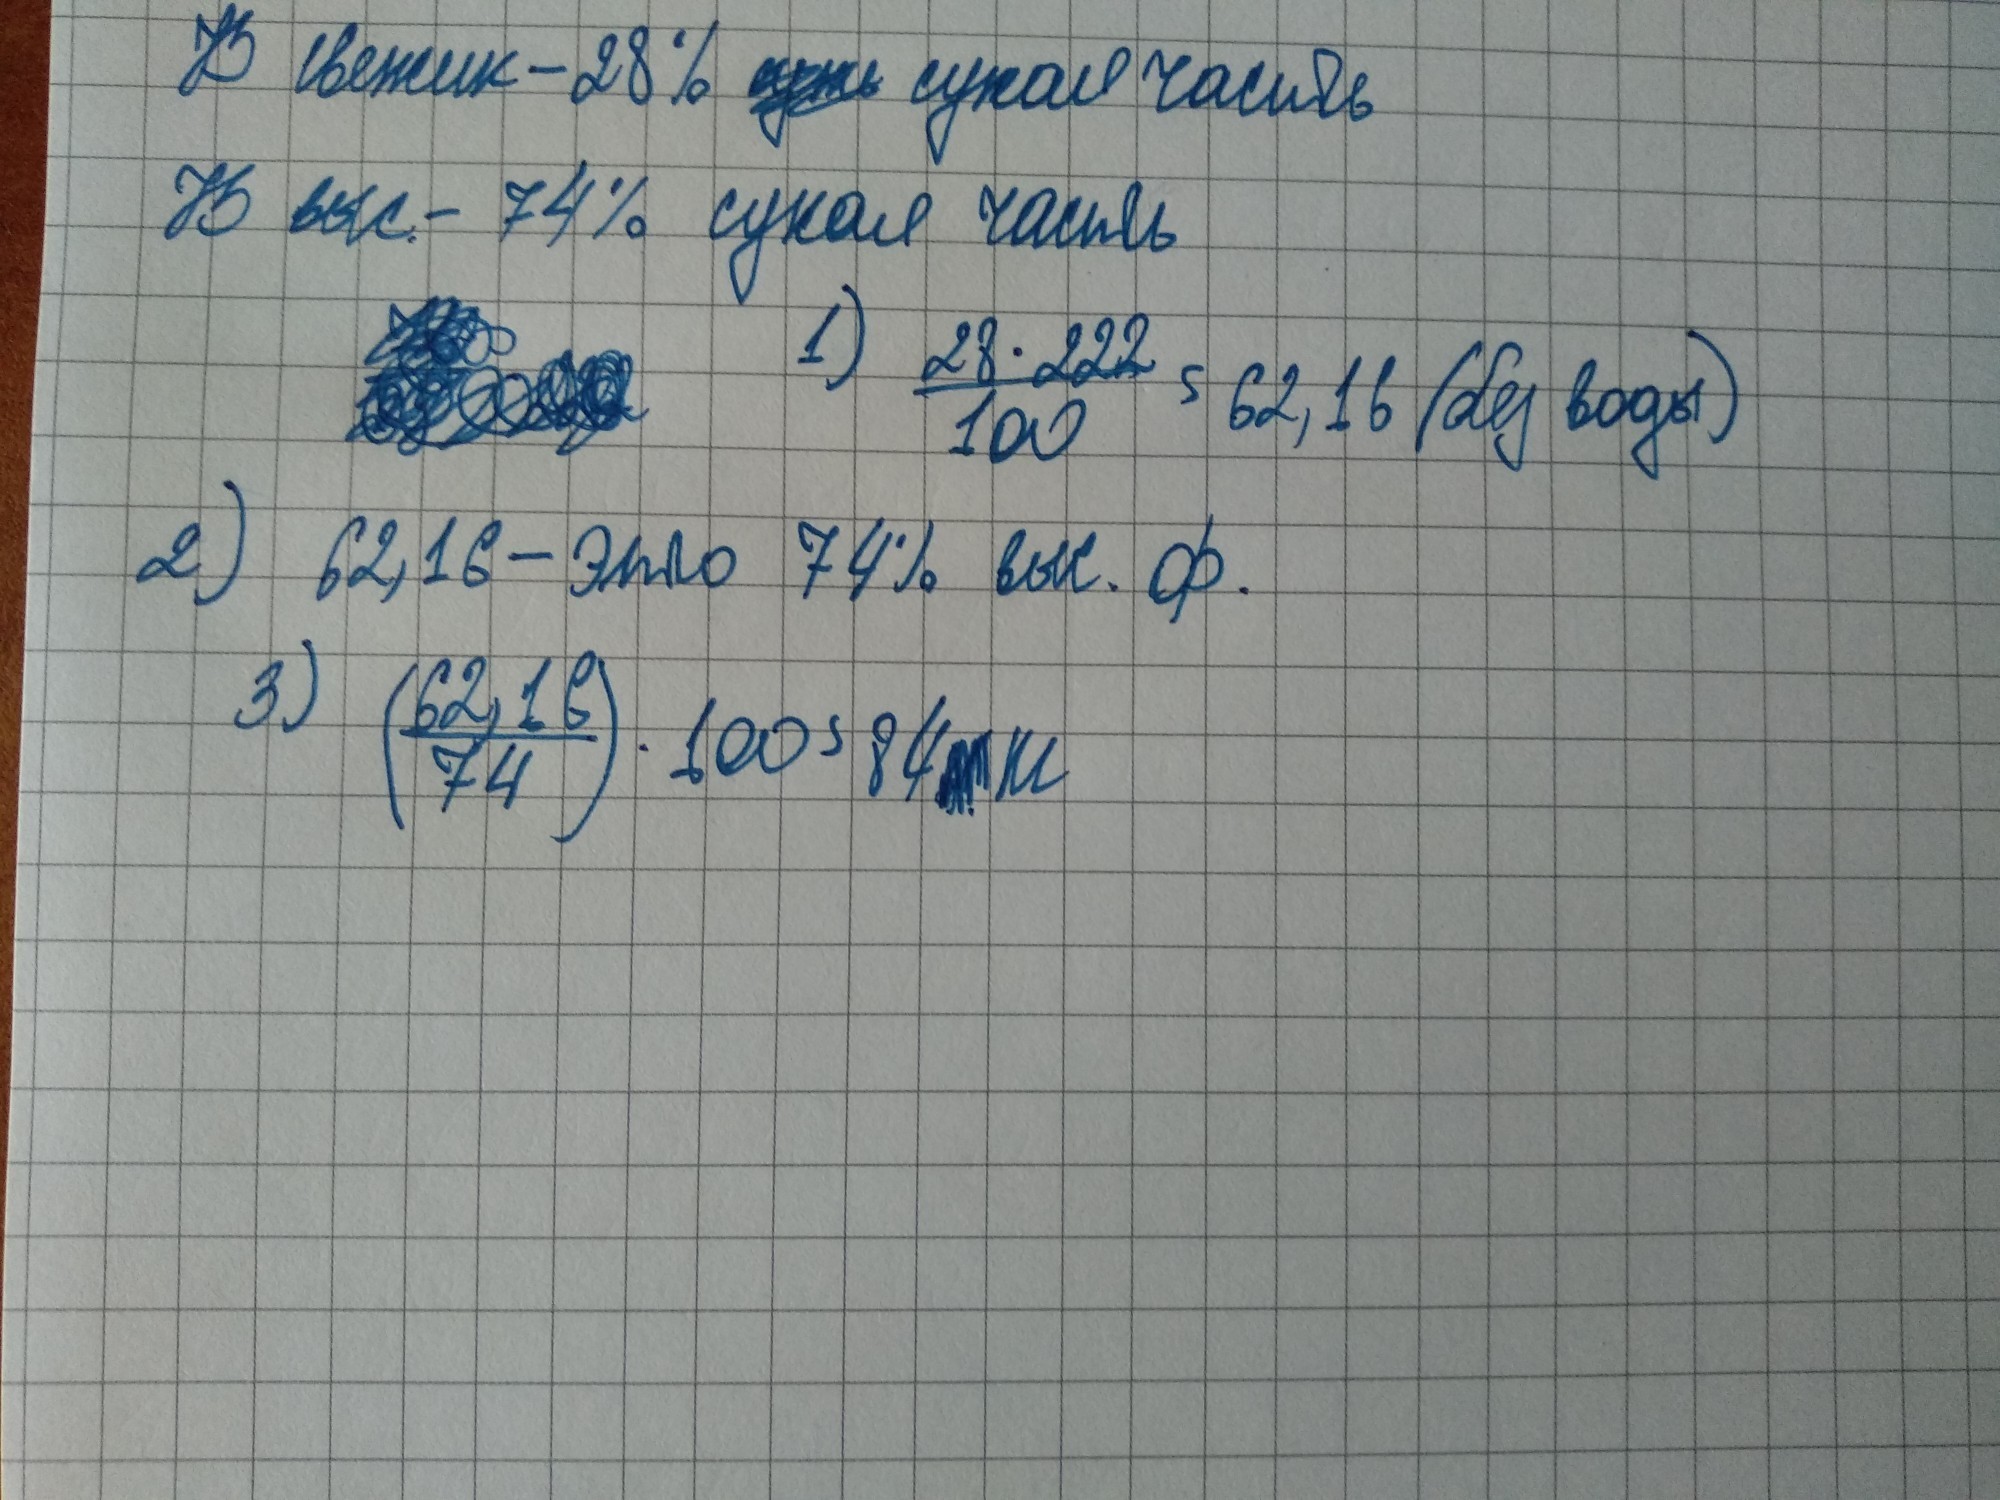 В свежих - 28% сухая часть
В выс. - 74% сухая часть
1) 28 · 222 / 100 = 62,16 (без воды)
2) 62,16 - это 74% выс. ф.
3) (62,16 / 74) · 100 = 84 кг